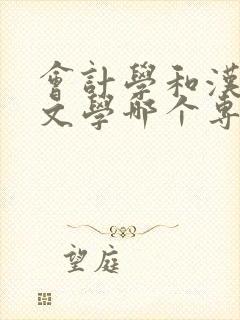 會計學和漢
文學哪个專
望庭